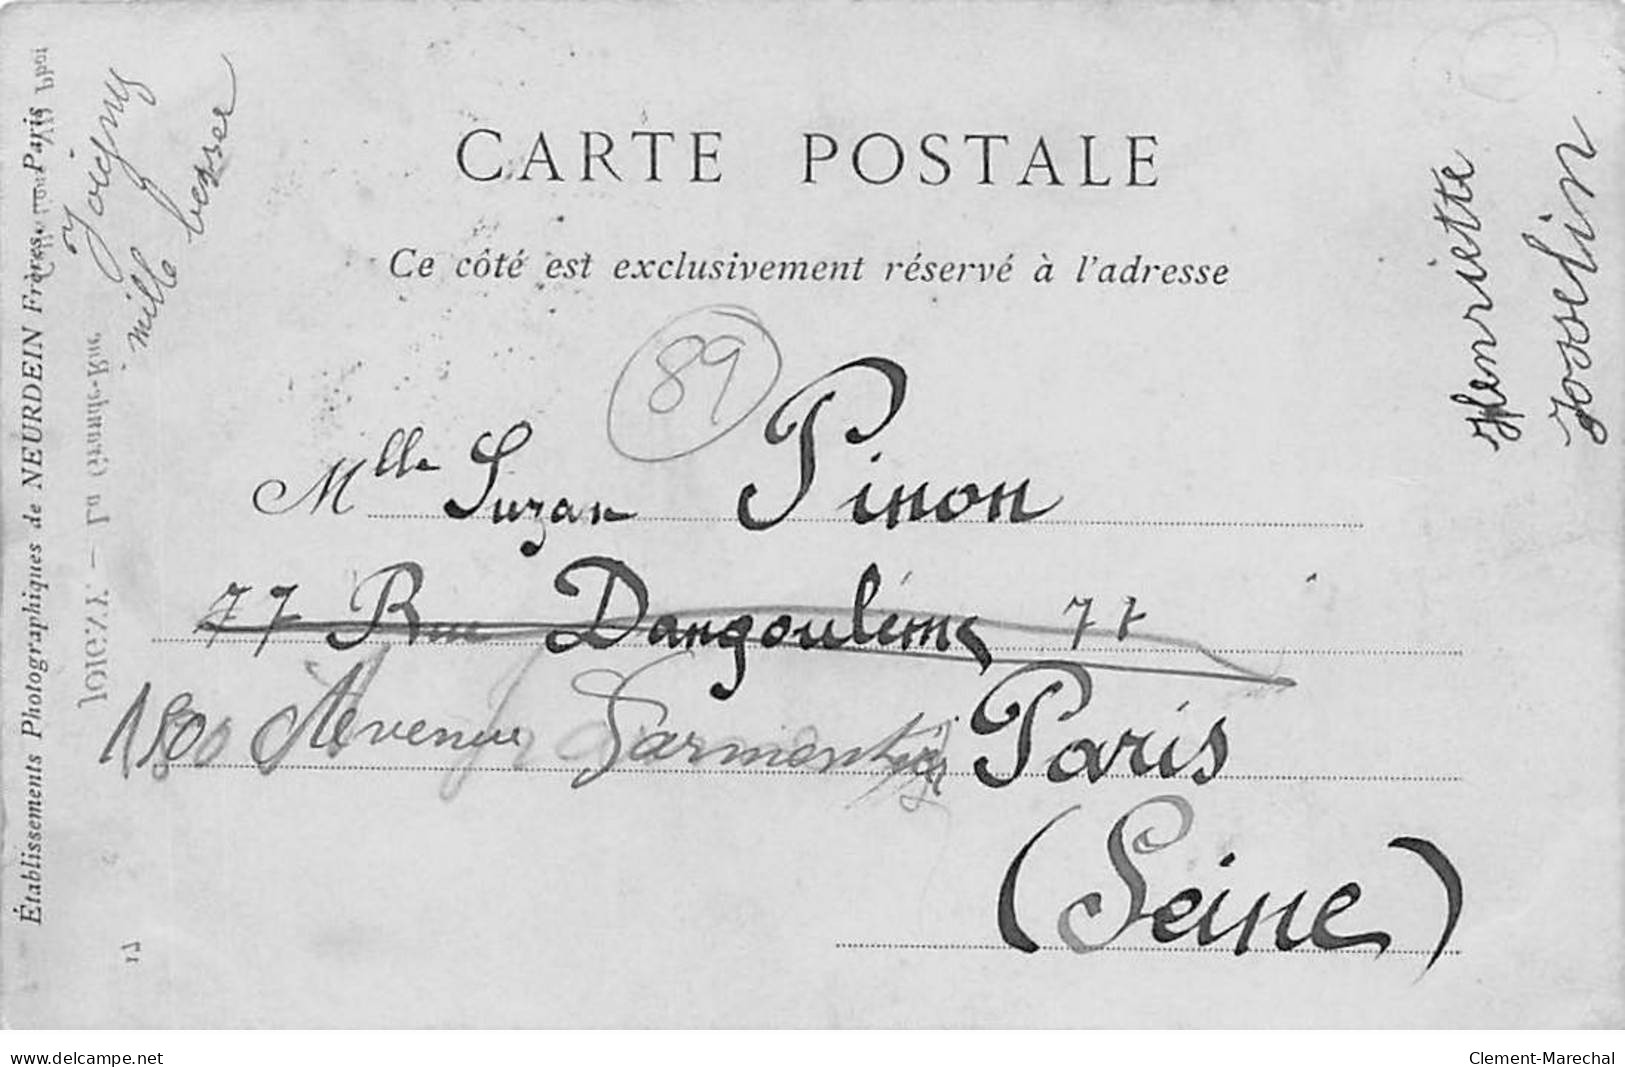 CARTE POSTALE
Ce côté est exclusivement réservé à l'adresse
89
Mlle Suzan Pinon
77 Rue Dangoulême 77
150 Avenue Parmentier Paris
(Seine)
Joigny
mille besser
Henriette
Josselin
Établissements Photographiques de NEURDEIN Frères. Paris
JOIGNY. — La Grande-Rue
12
www.delcampe.net
Clement-Marechal